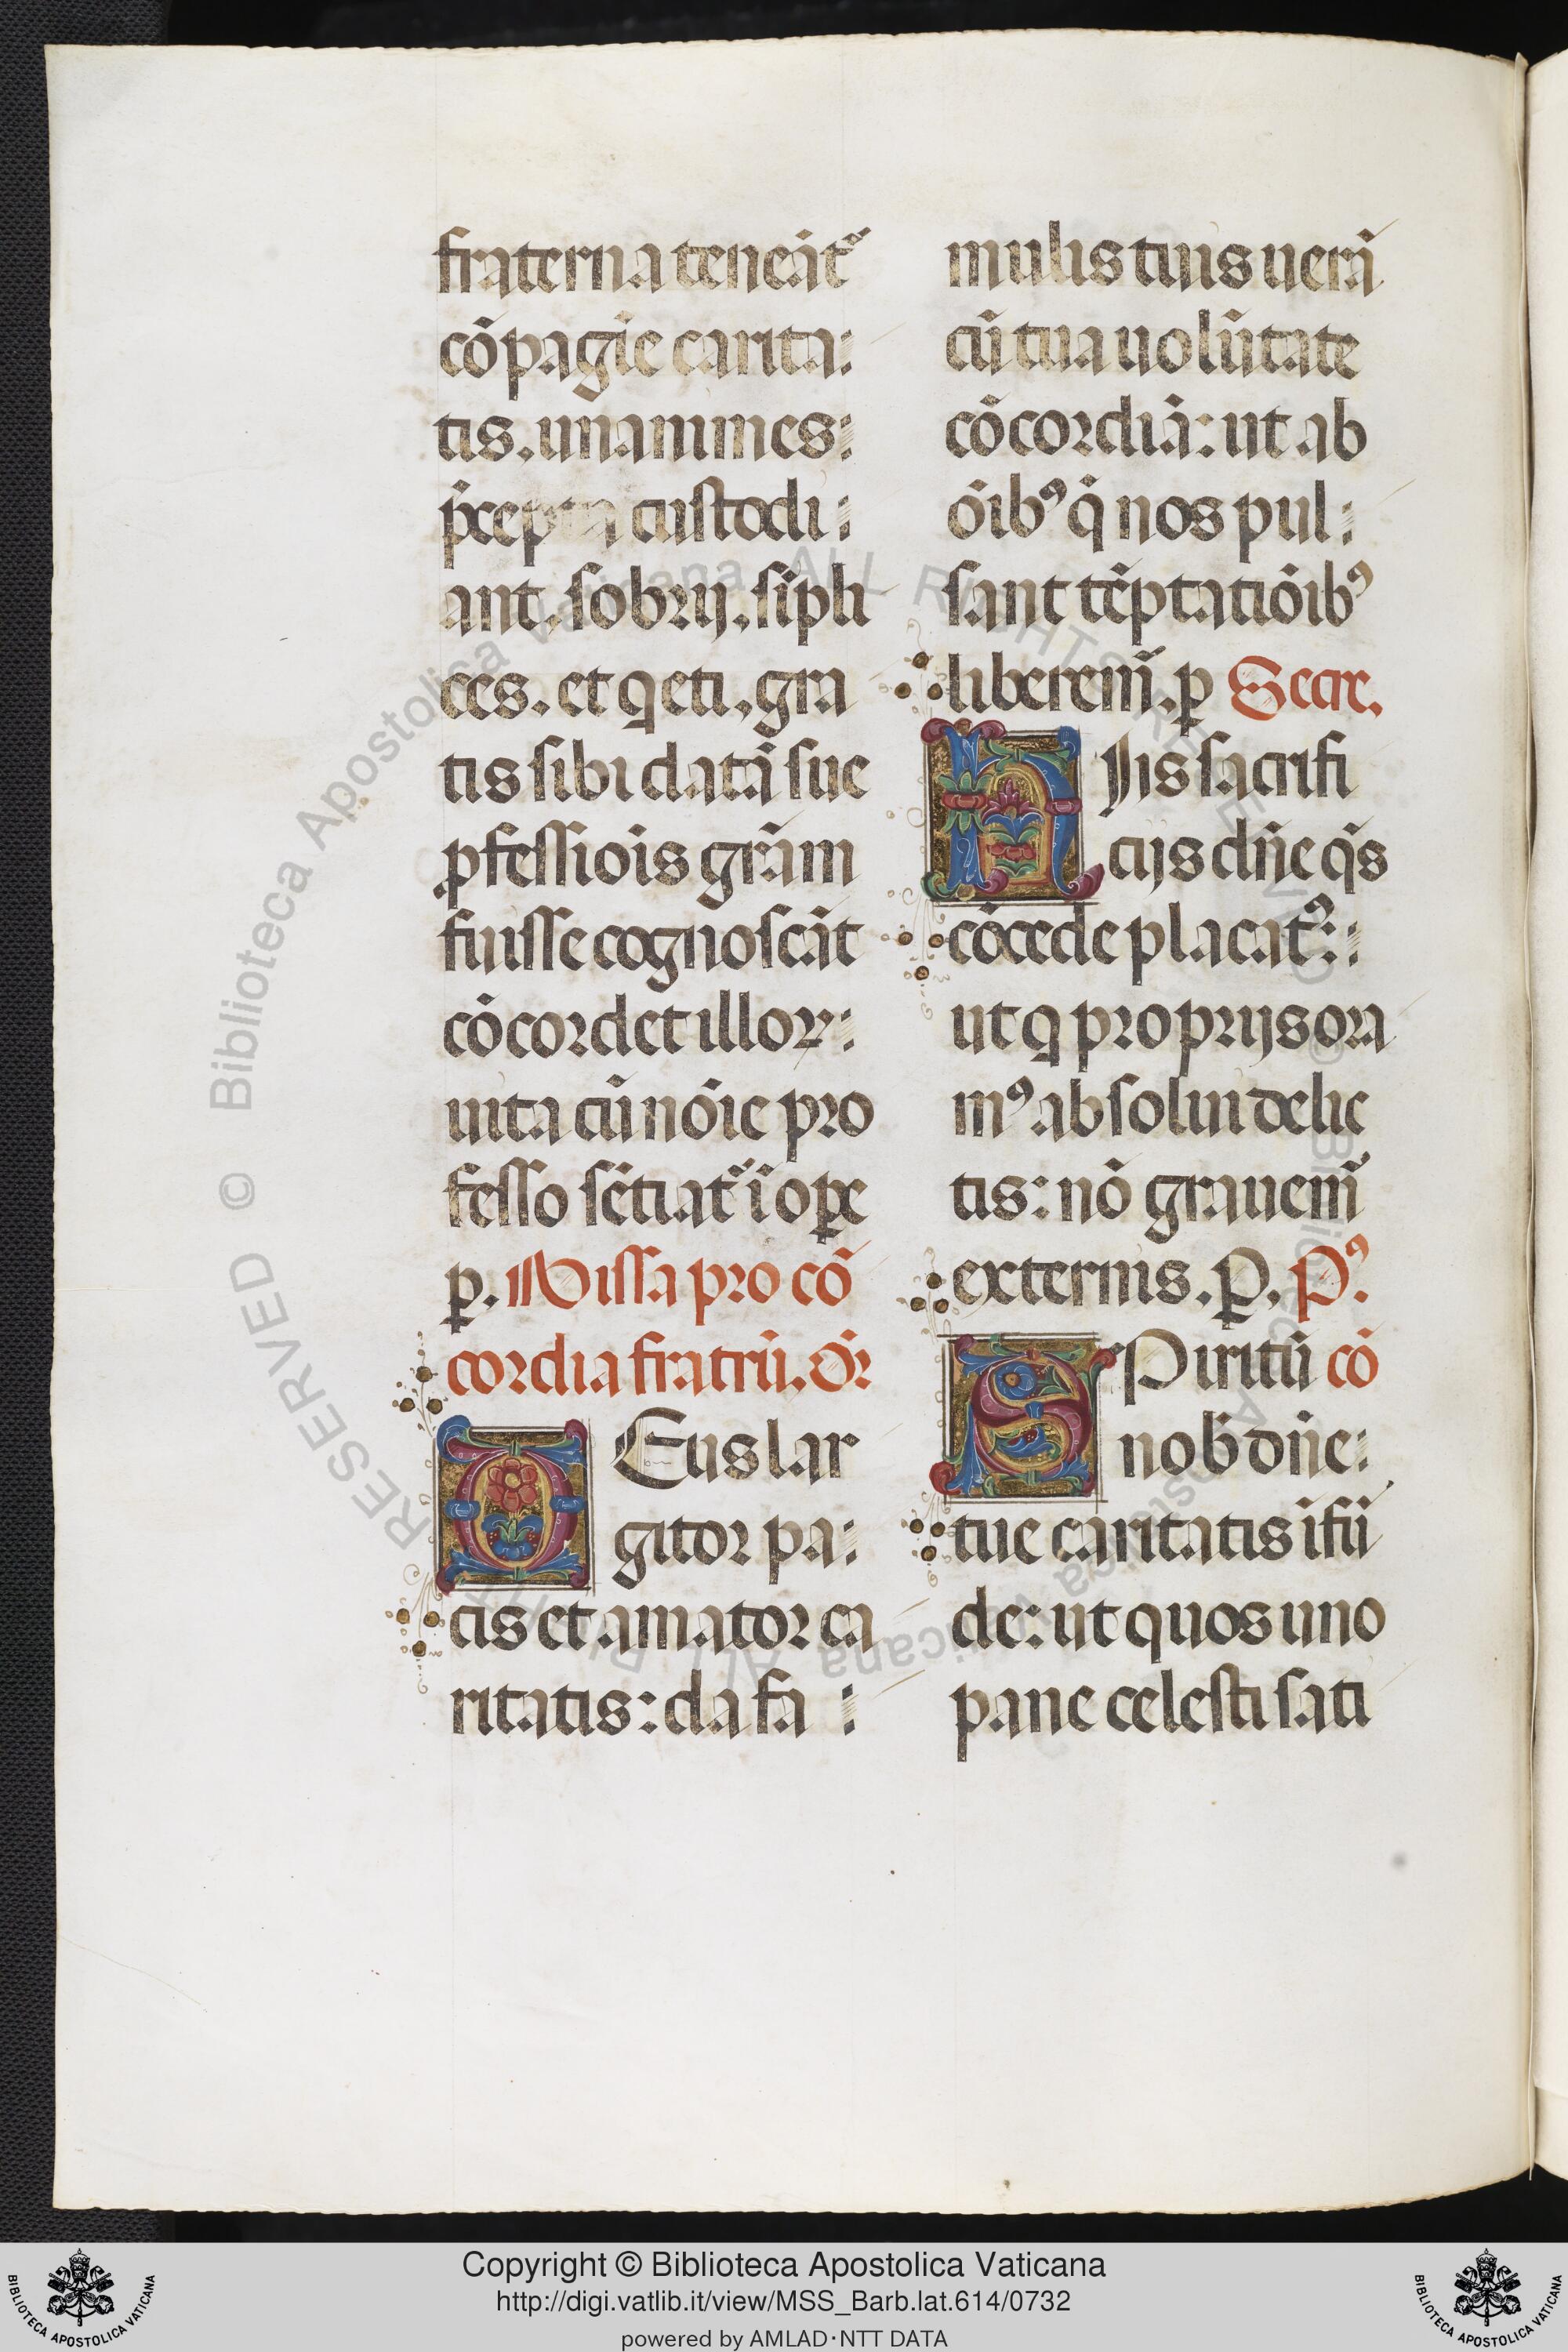 fraterna teneāt᷑
cōpagīe carita:
tis. unanimes:
p̄cepta custodi:
ant. sobrij. sīpli
ces. et qeti. gra
tis sibi datā sue
ꝓfessiōis grām
fuisse cognoscāt
cōcordet illoꝝ:
uita cū nōie pro
fesso sētiat᷑ ī oꝑe
ꝑ. Missa pro cō
cordia fratrū. Or̄
DEus lar
gitor pa:
cis et amator ca
ritatis: da fa:
mulis tuis uerā
cū tua uolūtate
cōcordiā: ut ab
ōibꝰ q̄ nos pul:
sant tēptatiōibꝰ
liberem̄. ꝑ Secre.
HIis sacrifi
cijs dn̄e qs̄
cōcede placatꝰ:
ut q proprijs ora
mꝰ absolui delic
tis: nō grauem̄
externis. P. Pꝰ.
SPiritū cō
nob̄ dn̄e:
tue caritatis ifū
de: ut quos uno
pane celesti sati
Copyright © Biblioteca Apostolica Vaticana
http://digi.vatlib.it/view/MSS_Barb.lat.614/0732
powered by AMLAD·NTT DATA
BIBLIOTECA APOSTOLICA VATICANA
BIBLIOTECA APOSTOLICA VATICANA
© Biblioteca Apostolica Vaticana ALL RIGHTS RESERVED
© Biblioteca Apostolica Vaticana ALL RIGHTS RESERVED